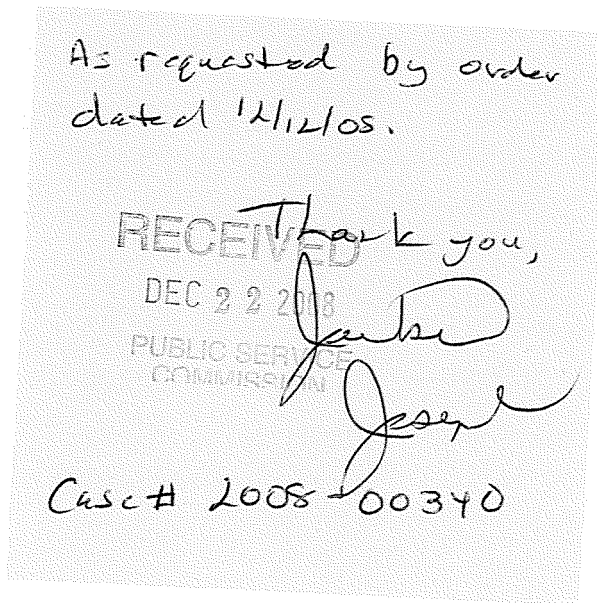 As requested by order
dated 12/12/08.
Thank you,
RECEIVED
DEC 22 2008
PUBLIC SERVICE
COMMISSION
Joseph
Case# 2008-00340